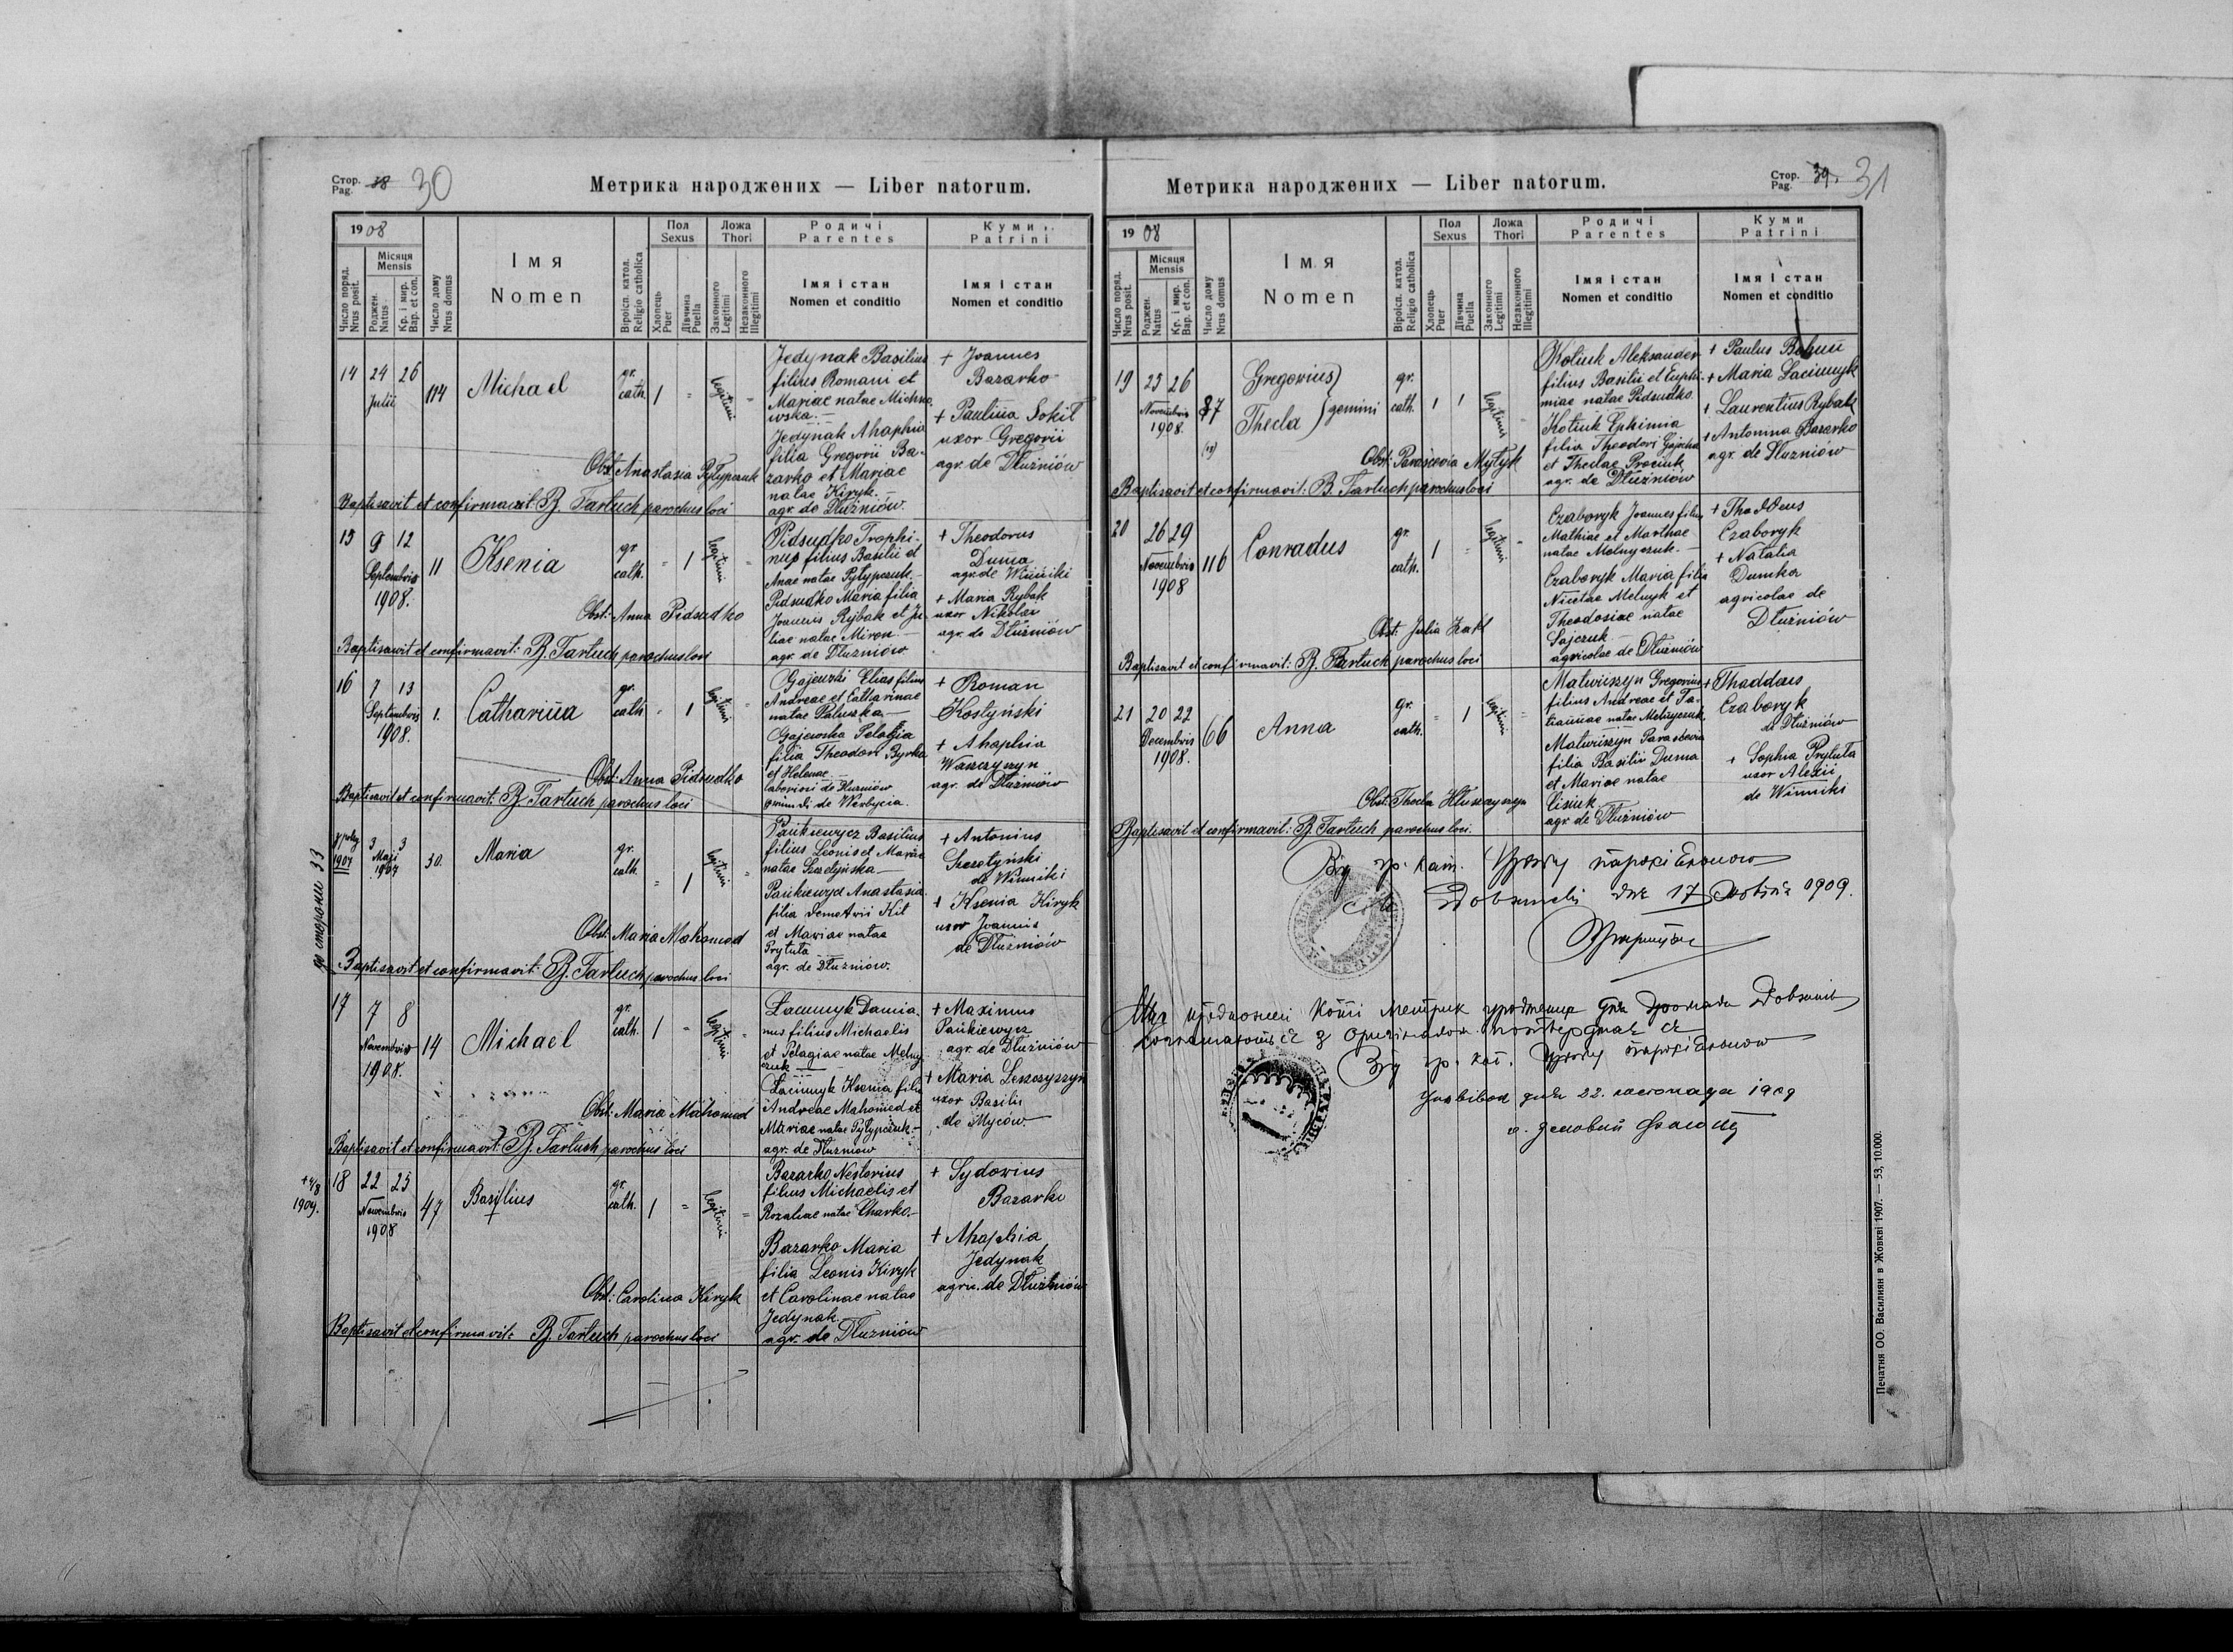 Стор. Pag. 38 30
Метрика народжених — Liber natorum.
1908
Число поряд. Nrus posit.
Місяця Mensis
Роджен. Natus
Кр. і мир. Bap. et con.
Число дому Nrus domus
Імя Nomen
Віроісп. катол. Religio catholica
Пол Sexus
Хлопець Puer
Дівчина Puella
Ложа Thori
Законного Legitimi
Незаконного Illegitimi
Родичі Parentes
Імя і стан Nomen et conditio
Куми Patrini
Імя і стан Nomen et conditio
14 24 26 Julii 114 Michael gr. cath. 1 " legitimi "
Jedynak Basilius
filius Romani et
Mariae natae Michno
wska.—
Jedynak Ahaphia
filia Gregorii Ba-
zarko et Mariae
natae Kiryk.—
agr. de Dłużniów.
+ Joannes
Bazarko
+ Paulina Sokił
uxor Gregorii
agr. de Dłużniów
Obst: Anastasia Pyłypczuk
Baptisavit et confirmavit: B. Tartuch parochus loci
15 9 12 Septembris 1908. 11 Ksenia gr. cath. " 1 legitimi "
Pidsudko Trophi-
mus filius Basilii et
Anae natae Pyłypczuk.—
Pidsudko Maria filia
Joannis Rybak et Ju-
liae natae Miron.—
agr. de Dłużniów
+ Theodorus
Duma
agr. de Winniki
+ Maria Rybak
uxor Nikolai
agr. de Dłużniów
Obst: Anna Pidsudko
Baptisavit et confirmavit: B. Tartuch parochus loci
16 7 13 Septembris 1908. 1. Catharina gr. cath. " 1 legitimi "
Elias filius
Andreae et Catharinae
natae
Gajewska Pelagia
filia Theodori Byrka
et Helenae
de Dłużniów
de Werbycia.
+ Roman
Kostyński
+ Ahaphia
Waszczyszyn
agr. de Dłużniów
Obst: Anna Pidsudko
Baptisavit et confirmavit: B. Tartuch parochus loci
до сторони 33
1907 3 3 Maji 1907 30. Maria gr. cath. " 1 legitimi "
Pańkiewycz Basilius
filius Leonis et Mariae
natae Szczetyńska—
Pańkiewycz Anastasia
filia Demetrii Kit
et Mariae natae
Prytuła
agr. de Dłużniów.
+ Antonius
Szczetyński
de Winniki
+ Ksenia Kiryk
uxor Joannis
de Dłużniów
Obst: Maria Mahomed
Baptisavit et confirmavit: B. Tartuch parochus loci
17 7 8 Novembris 1908. 14 Michael gr. cath. 1 " legitimi "
Łacimyk Damia-
nus filius Michaelis
et Pelagiae natae Melny
czuk —
Łacimyk Ksenia filia
Andreae Mahomed et
Mariae natae Pyłypczuk.—
agr. de Dłużniow
+ Maximus
Pańkiewycz
agr. de Dłużniów
+ Maria Leszczyszyn
uxor Basilii
de Myców.—
Obst: Maria Mahomed
Baptisavit et confirmavit: B. Tartuch parochus loci
+4/8 1909. 18 22 23 Novembris 1908 47 Basilius gr. cath. 1 " legitimi "
Bazarko Nestorius
filius Michaelis et
Rozaliae natae Charko.—
Bazarko Maria
filia Leonis Kiryk
et Carolinae natae
Jedynak
agr. de Dłużniów
+ Sydorius
Bazarko
+ Ahaphia
Jedynak
agric. de Dłużniów
Obst: Carolina Kiryk
Baptisavit et confirmavit: B. Tartuch parochus loci
Стор. Pag. 39. 31
Метрика народжених — Liber natorum.
1908
Число поряд. Nrus posit.
Місяця Mensis
Роджен. Natus
Кр. і мир. Bap. et con.
Число дому Nrus domus
Імя Nomen
Віроісп. катол. Religio catholica
Пол Sexus
Хлопець Puer
Дівчина Puella
Ложа Thori
Законного Legitimi
Незаконного Illegitimi
Родичі Parentes
Імя і стан Nomen et conditio
Куми Patrini
Імя і стан Nomen et conditio
19 23 26 Novembris 1908. 87 Gregorius Thecla } gemini gr. cath. 1 1 legitimi
Kotiuk Aleksander
filius Basilii et Euphi-
miae natae Pidsudko.
Kotiuk Ephimia
filia Theodori
et Theclae Prociuk
agr. de Dłużniów
+ Paulus
+ Maria Łacimyk
+ Laurentius Rybak
+ Antonina Bazarko
agr. de Dłużniów
Obst: Parascevia Mytyk
Baptisavit et confirmavit: B. Tartuch parochus loci
20 26 29 Novembris 1908 116 Conradus gr. cath. 1 " legitimi "
Czaboryk Joannes filius
Mathiae et Marthae
natae Melnyczuk.—
Czaboryk Maria filia
Nicetae Melnyk et
Theodosiae natae
Sajczuk —
agricolae de Dłużniów
+ Thaddeus
Czaboryk
+ Natalia
Dumka
agricolae de
Dłużniów
Obst: Julia
Baptisavit et confirmavit: B. Tartuch parochus loci
21 20 22 Decembris 1908. 66 Anna gr. cath. " 1 legitimi "
Matwiszyn Gregorius
filius Andreae et Ta-
tiannae natae Melnyczuk.
Matwiszyn Parascevia
filia Basilii Duma
et Mariae natae
Cisiuk
agr. de Dłużniów
+ Thaddaus
Czaboryk
de Dłużniów
+ Sophia Prytuła
uxor Alexii
de Winniki
Obst: Thecla Hłuszczyszyn
Baptisavit et confirmavit: B. Tartuch parochus loci.
гр. кат.
дня 17 1909.
гр. кат.
дня 22. листопада 1909
Печатня ОО. Василиян в Жовкві 1907. — 53, 10.000.